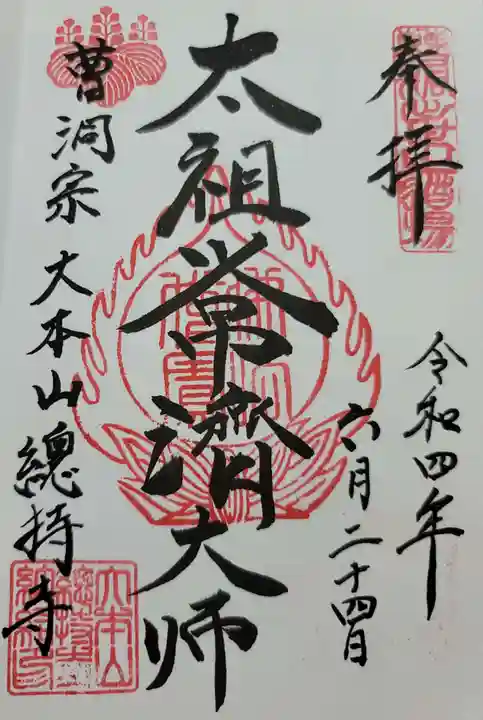 奉拝
令和四年
六月二十四日
太祖常濟大师
曹洞宗 大本山 總持寺